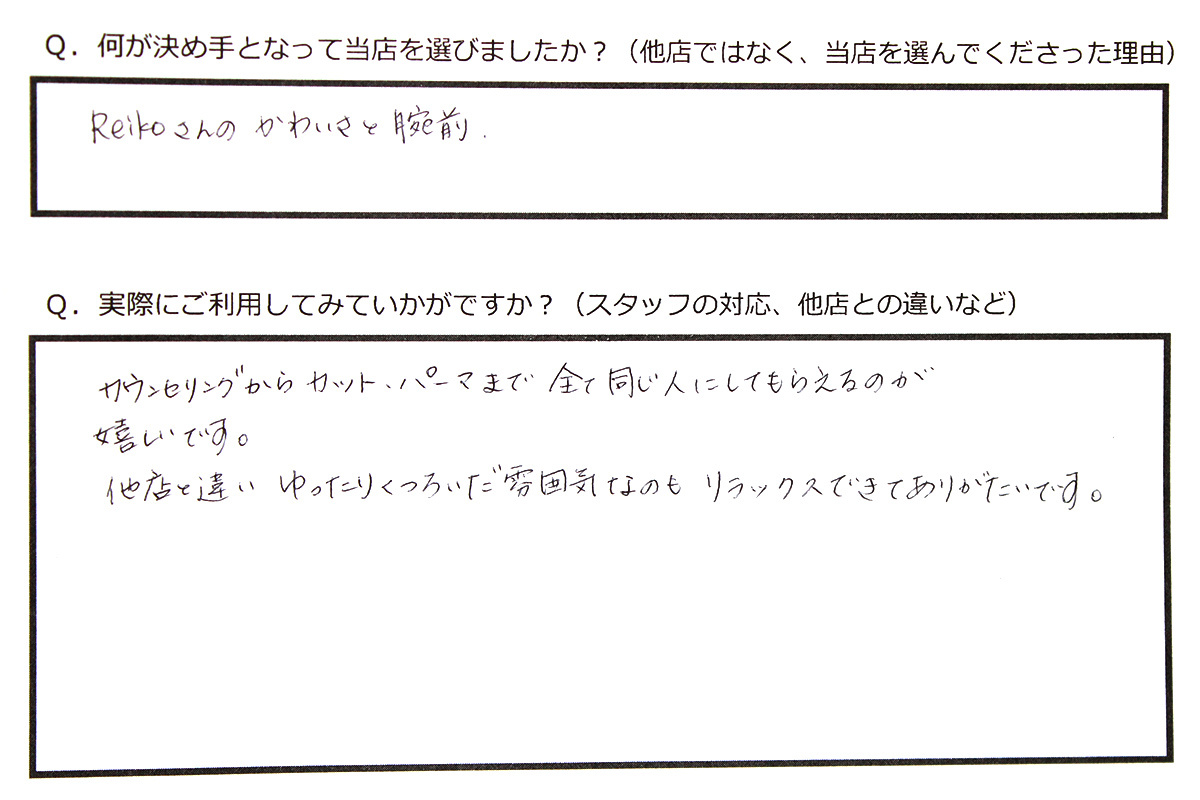 Q. 何が決め手となって当店を選びましたか？（他店ではなく、当店を選んでくださった理由）
Reikoさんの かわいさと 腕前.
Q. 実際にご利用してみていかがですか？（スタッフの対応、他店との違いなど）
カウンセリングから カット、パーマまで 全て同じ人にしてもらえるのが
嬉しいです。
他店と違い ゆったりくつろいだ雰囲気なのも リラックスできてありがたいです。